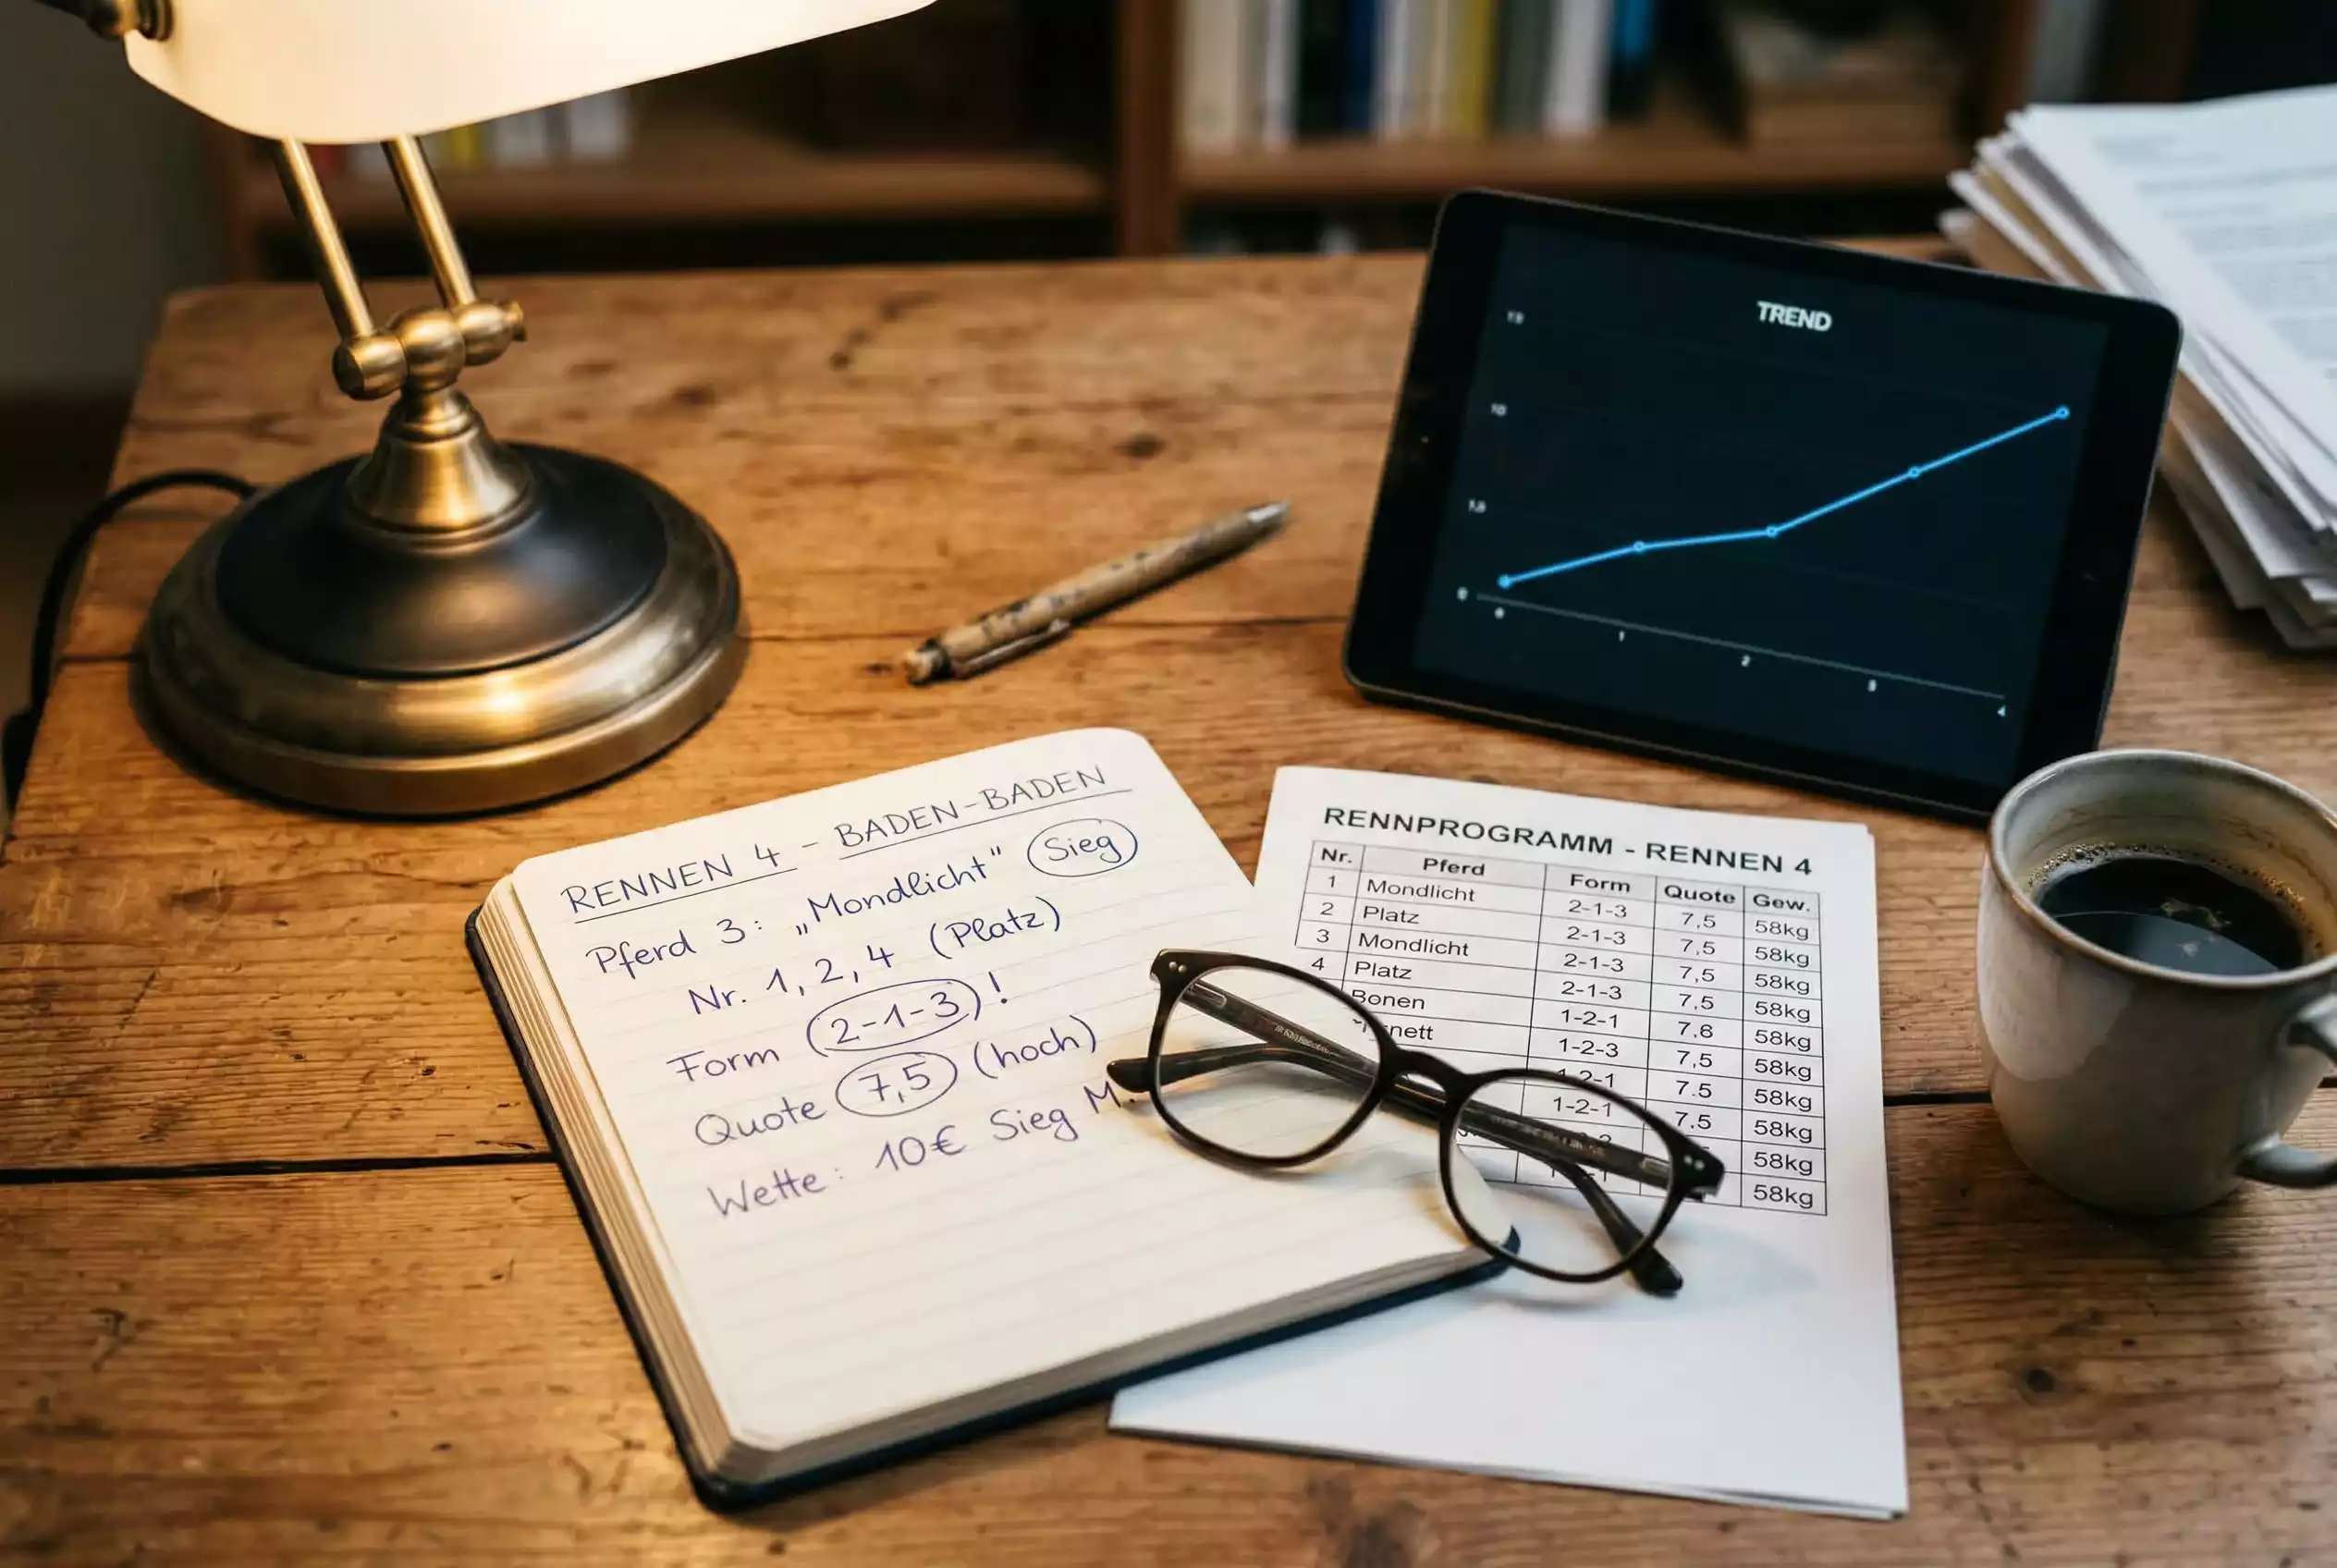 TREND
10
0
0
1
2
3
4
RENNEN 4 - BADEN-BADEN
Pferd 3: „Mondlicht" Sieg
Nr. 1, 2, 4 (Platz)
Form 2-1-3)!
Quote 7,5 (hoch)
Wette: 10€ Sieg M.
RENNPROGRAMM - RENNEN 4
Nr. Pferd Form Quote Gew.
1 Mondlicht 2-1-3 7,5 58kg
2 Platz 2-1-3 7,5 58kg
3 Mondlicht 2-1-3 7,5 58kg
4 Platz 2-1-3 7,5 58kg
Bonen 1-2-1 7.8 58kg
nett 1-2-3 7,5 58kg
7.5 58kg
1-2-1 7.5 58kg
58kg
58kg